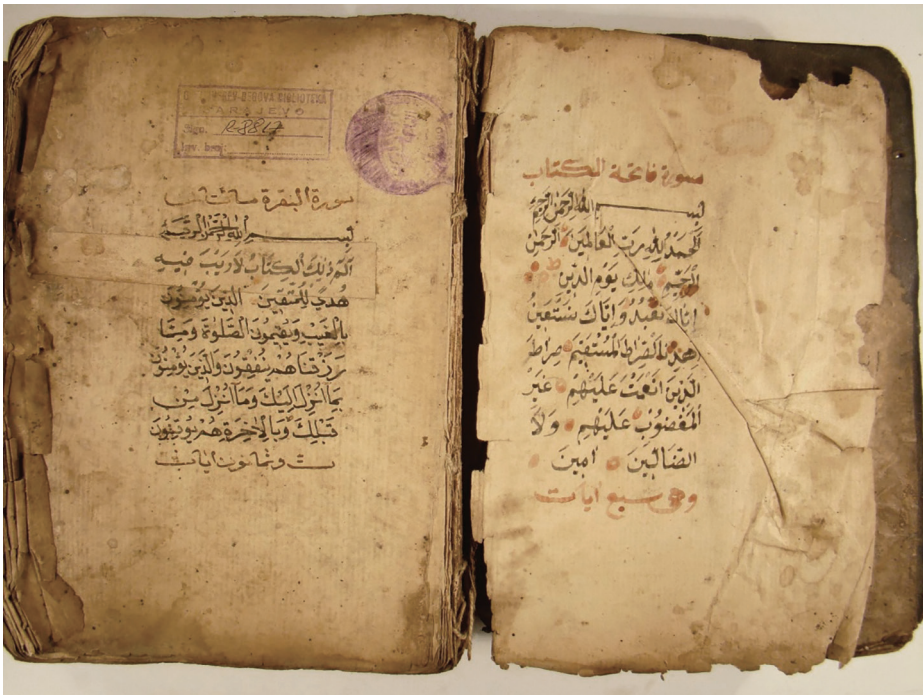 سورة فاتحة الكتاب
بسم الله الرحمن الرحيم
الحمد لله رب العالمين الرحمن
الرحيم ملك يوم الدين
اياك نعبد واياك نستعين
اهدنا الصراط المستقيم صراط
الذين انعمت عليهم غير
المغضوب عليهم ولا
الضالين امين
وهي سبع ايات
سورة البقرة مائتان
بسم الله الرحمن الرحيم
الم ذلك الكتاب لا ريب فيه
هدى للمتقين الذين يؤمنون
بالغيب ويقيمون الصلوة ومما
رزقناهم ينفقون والذين يؤمنون
بما انزل اليك وما انزل من
قبلك وبالاخرة هم يوقنون
ست وثمانون ايات
SARAJEVO
Sign. R-8817
Inv. broj: